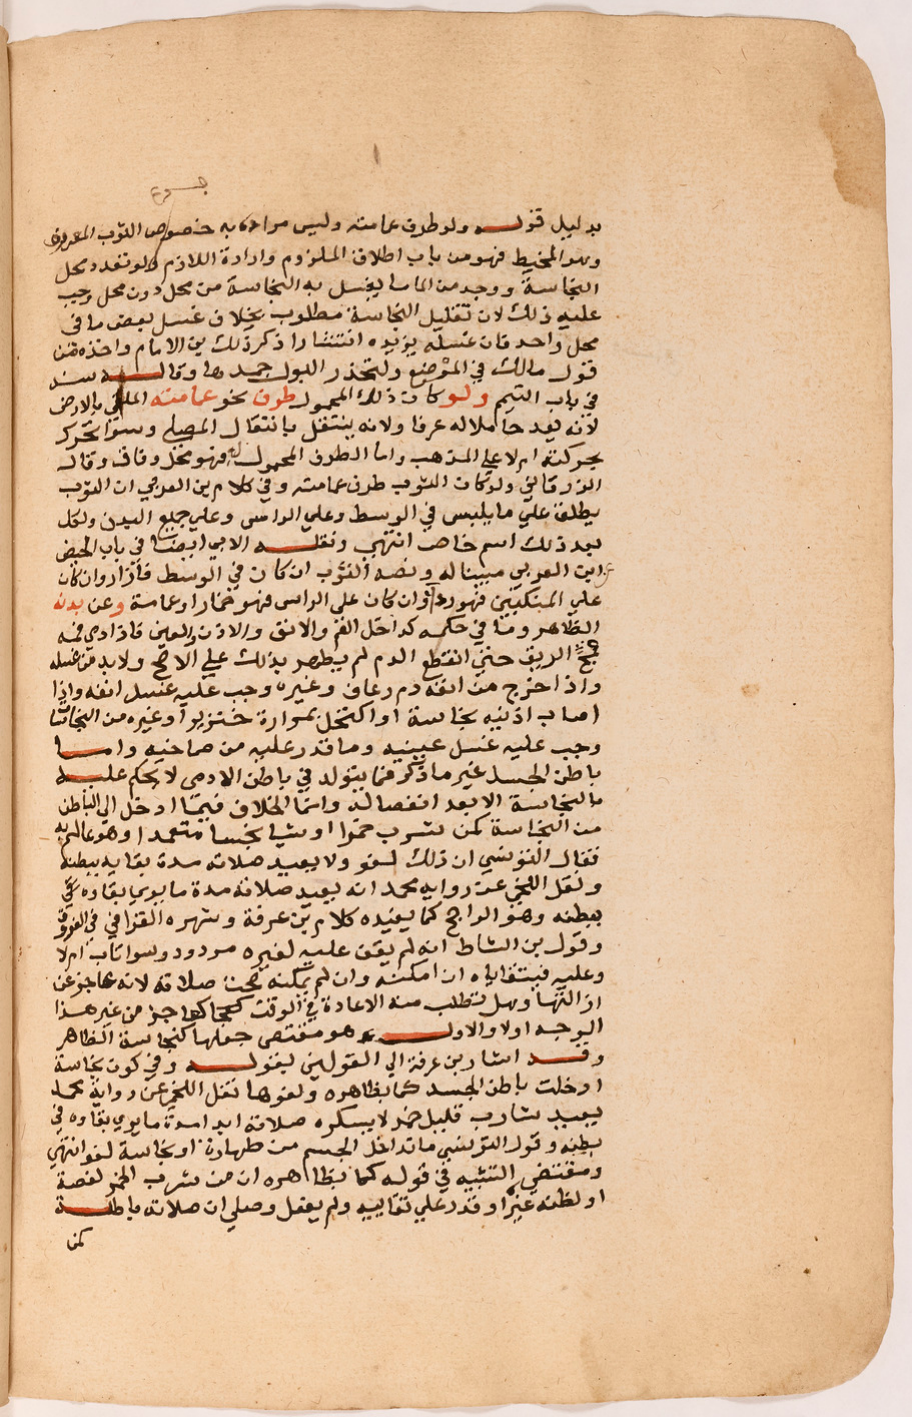 بدليل قوله ولو طرف عمامته وليس مراده به خصوص الثوب المعروف
وهو المخيط فهو من باب اطلاق الملزوم وارادة اللازم ولو تعدد محل
النجاسة ووجد من الما ما يغسل به النجاسة من محل دون محل وجب
عليه ذلك لان تقليل النجاسة مطلوب بخلاف غسل بعض ما في
محل واحد فان غسله يزيده انتشارا ذكر ذلك بن الامام واخذه من
قول مالك في الموضع وقال سند
في باب التيمم ولو كان ذلك المحمول طرف نحو عمامته الملقي بالارض
لانه يعد حاملا له عرفا ولانه ينتقل بانتقال المصلي وسوا تحرك
بحركته ام لا علي المذهب واما الطرف المحمول فهو محل وفاق وقال
الزرقاني ولو كان الثوب طرف عمامته وفي كلام بن العربي ان الثوب
يطلق علي ما يلبس في الوسط وعلي الراس وعلي جميع البدن ولكل
بعد ذلك اسم خاص انتهي ونقله الابي ايضا في باب الحيض
عن ابن العربي مبينا له ونصه الثوب ان كان في الوسط فازار وان كان
علي المنكبين فهو ردا وان كان علي الراس فهو خمار او عمامة وعن بدنه
الظاهر وما في حكمه كداخل الفم والانف والاذن والعين فاذا دمي فمه
مج الريق حتي انقطع الدم لم يطهر بذلك علي الاصح ولا بد من غسله
واذا خرج من انفه دم رعاف وغيره وجب عليه غسل انفه واذا
اصاب اذنيه نجاسة او اكتحل بمرارة خنزير او غيره من النجاسات
وجب عليه غسل عينيه وما قدر عليه من صماخيه واما
باطن الجسد غير ما ذكر فما يتولد في باطن الادمي لا يحكم عليه
بالنجاسة الا بعد انفصاله وانما الخلاف فيما ادخل الي الباطن
من النجاسة كمن شرب خمرا او شيا نجسا متعمدا وهو عالم به
فقال التونسي ان ذلك لغو ولا يعيد صلاته مدة بقايه ببطنه
ونقل اللخمي عن رواية محمد انه يعيد صلاته مدة ما يري بقاوه
ببطنه وهو الراجح كما يفيده كلام بن عرفة وشهره القرافي في الفروق
وقول بن الشاط انه لم يقف عليه لغيره مردود وسوا تاب ام لا
وعليه فيتقاياه ان امكنه وان لم يمكنه صحت صلاته لانه عاجز عن
ازالتها وهل تطلب منه الاعادة في الوقت كعاجز من غير هذا
الوجه اولا والاول هو مقتضي جعلها كنجاسة الظاهر
وقد اشار بن عرفة الي القولين بقوله وفي كون نجاسة
ادخلت باطن الجسد كما بظاهره ولغوها نقل اللخمي عن رواية محمد
يعيد شارب قليل خمر لا يسكره صلاته ابدا مدة ما يري بقاوه في
بطنه وقول التونسي ما تداخل الجسم من طهارة او نجاسة لغو انتهي
ومقتضي التشبيه في قوله كما بظاهره ان من شرب الخمر لغصة
او لظنه غيرا وقدر علي تقاييه ولم يفعل وصلي ان صلاته باطلة
كمن